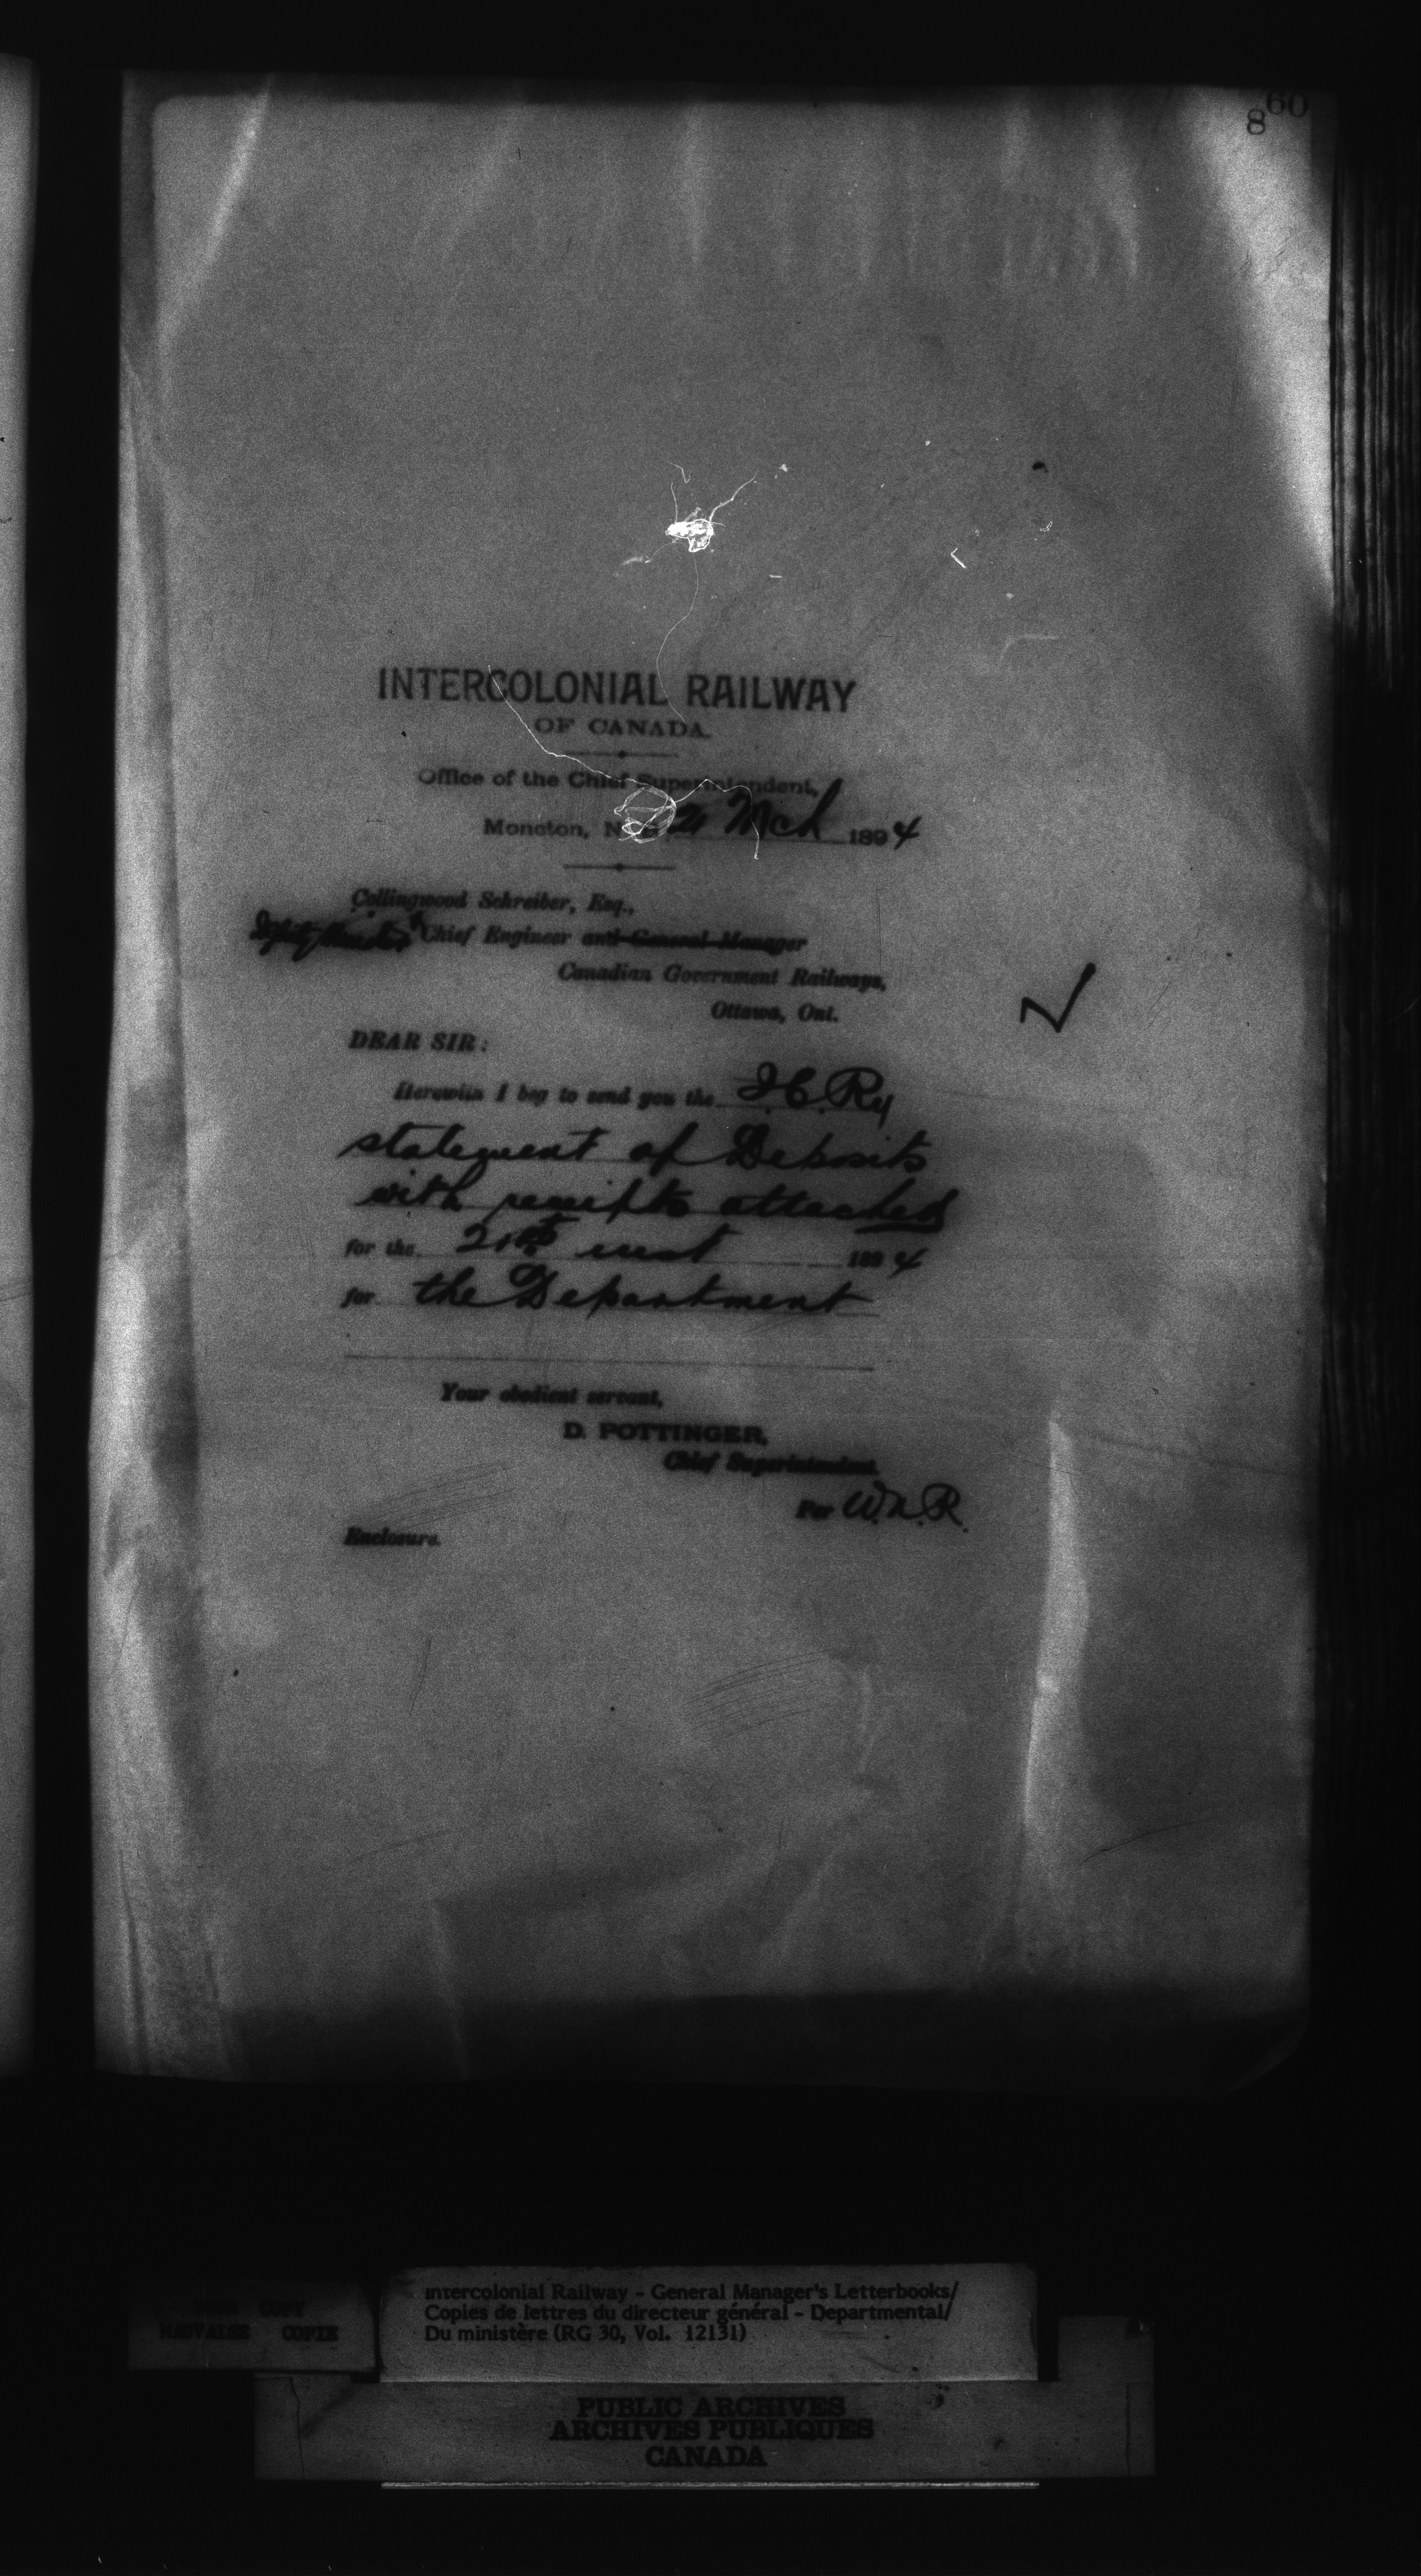 860
INTERCOLONIAL RAILWAY
OF CANADA.
Office of the Chief Superintendent,
Moncton, N. 21 Mch 1894
Collingwood Schreiber, Esq.,
Deputy Minister & Chief Engineer and General Manager
Canadian Government Railways,
Ottawa, Ont.
DEAR SIR:
Herewith I beg to send you the I.C.Ry
statement of Deposits
with receipts attached
for the 20th inst 1894
for the Department
Your obedient servant,
D. POTTINGER,
Chief Superintendent.
Per W.N.R.
Enclosure.
POOR COPY
MAUVAISE COPIE
Intercolonial Railway - General Manager's Letterbooks/
Copies de lettres du directeur général - Departmental/
Du ministère (RG 30, Vol. 12131)
PUBLIC ARCHIVES
ARCHIVES PUBLIQUES
CANADA